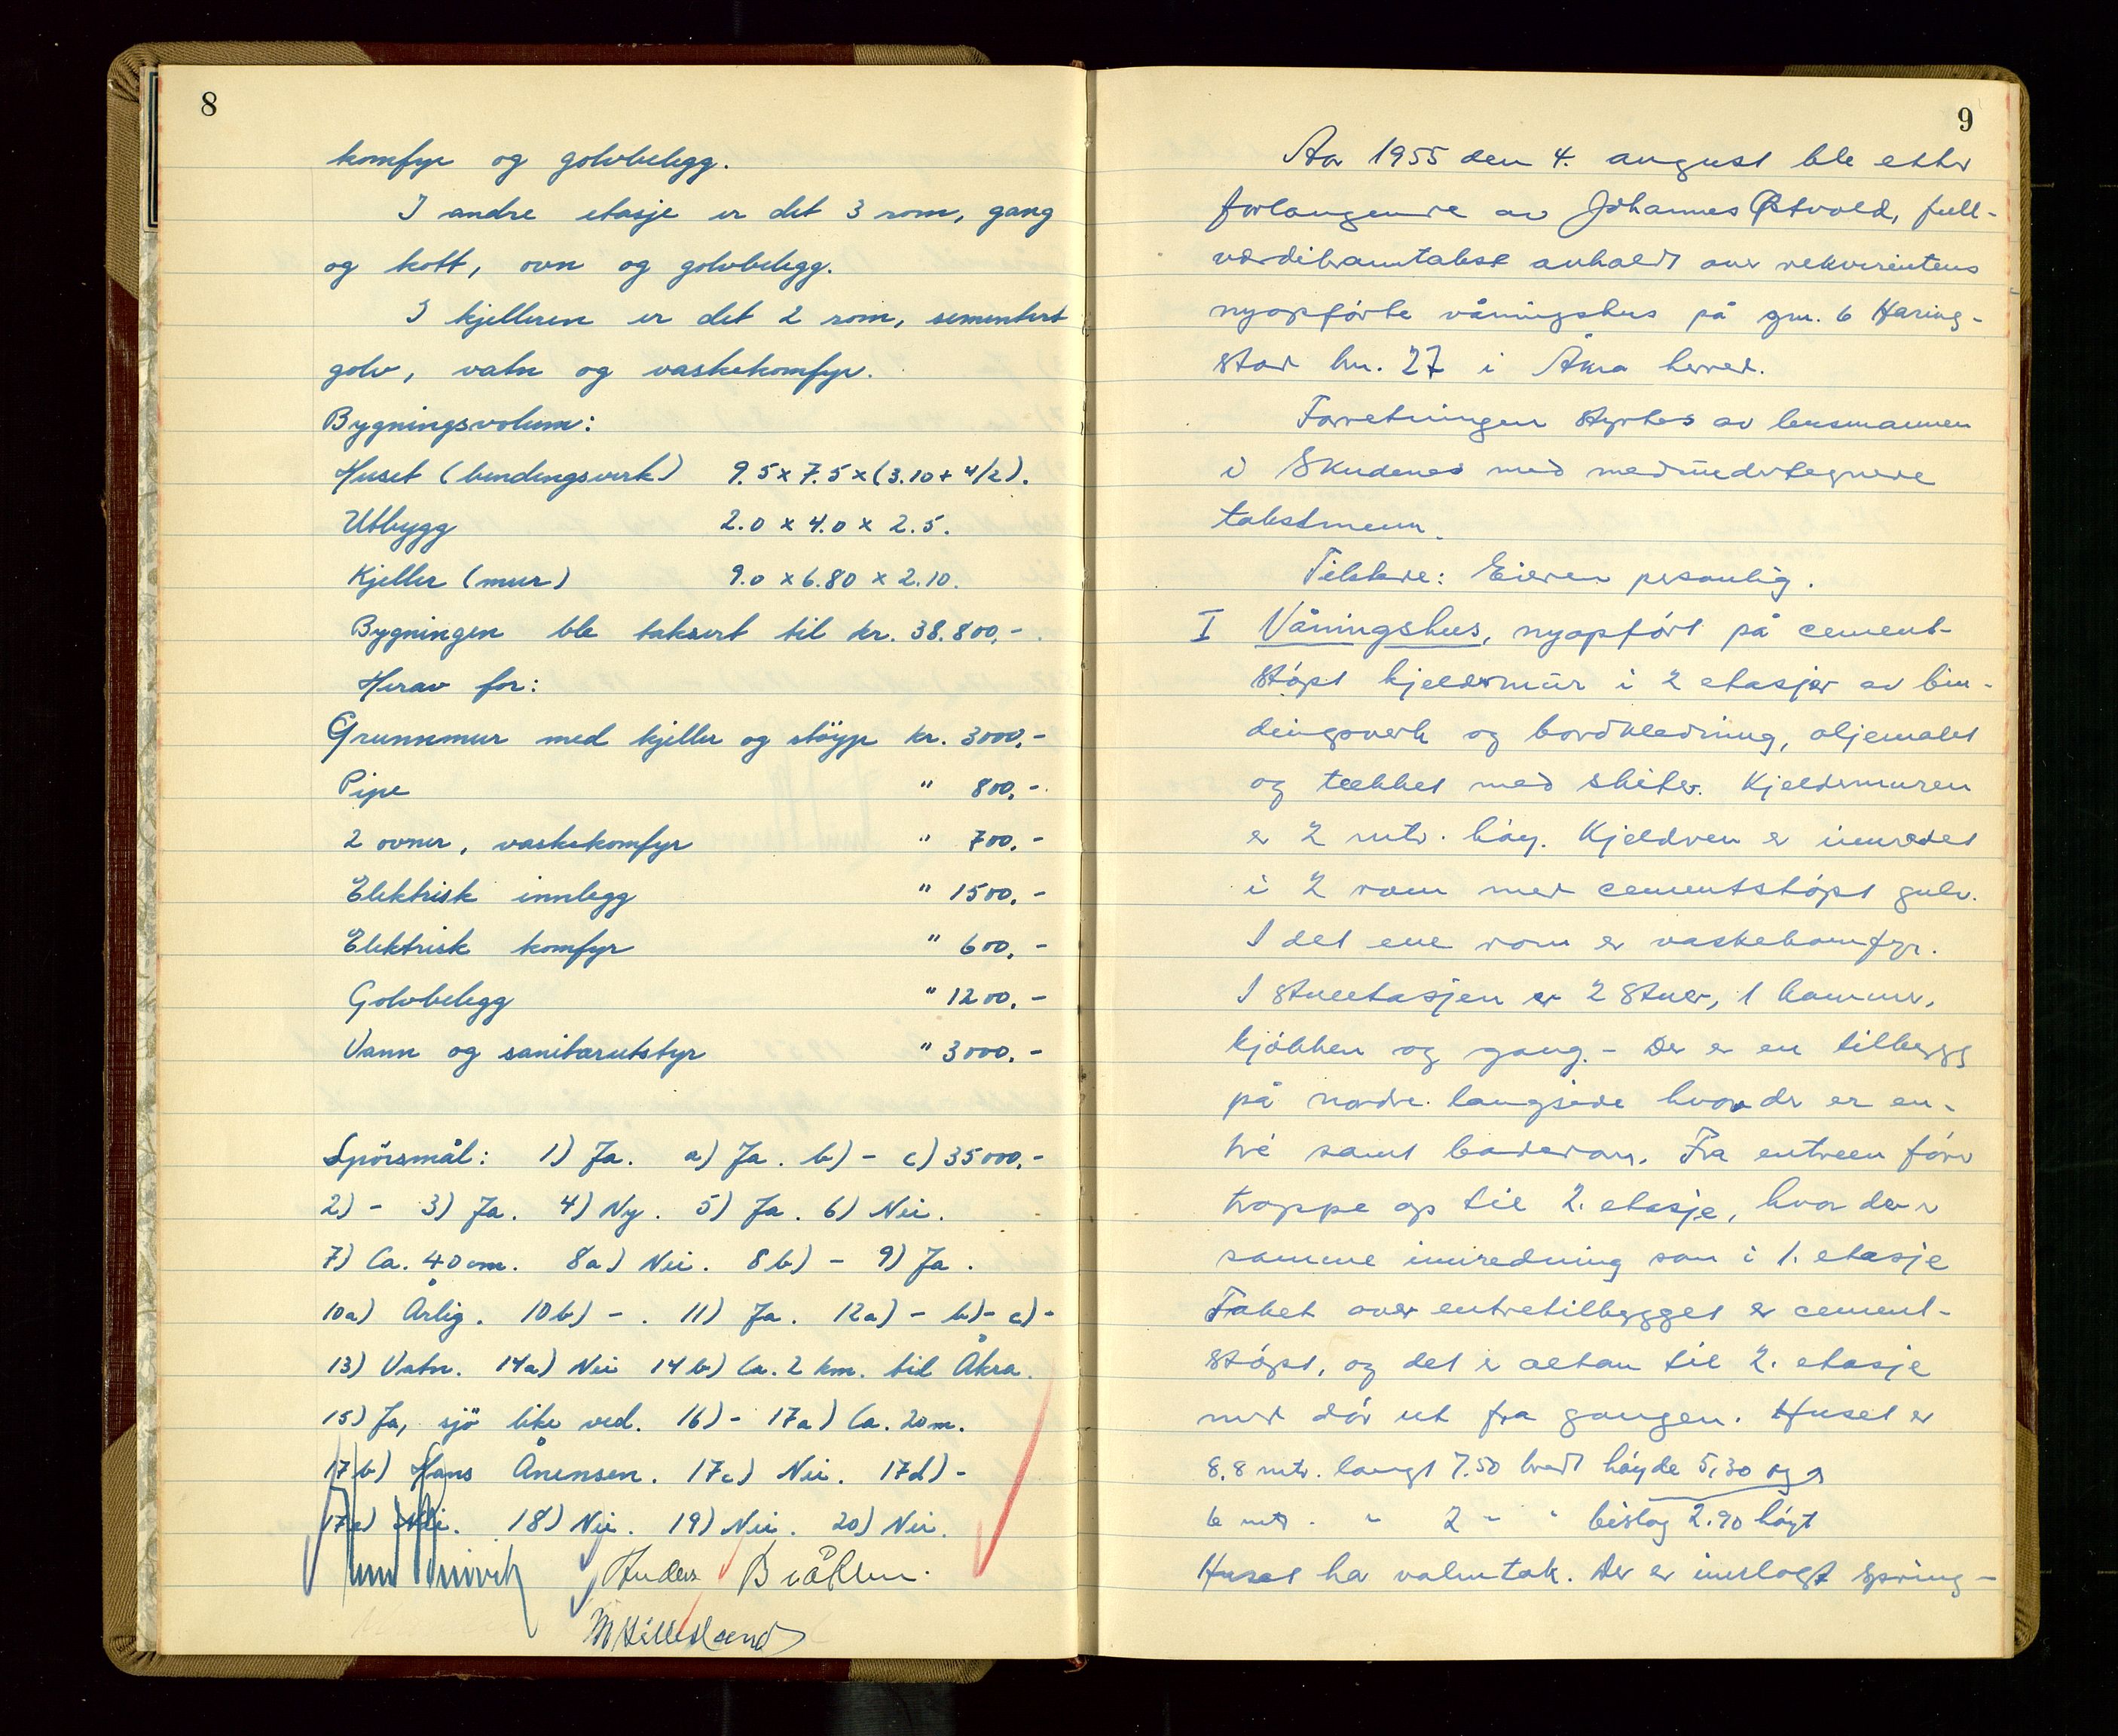 8
komfyr og golvbelegg.
I andre etasje er det 3 rom, gang
og kott, ovn og golvbelegg.
I kjelleren er det 2 rom, sementert
golv, vatn og vaskekomfyr.
Bygningsvolum:
Huset (bindingsverk) 9.5 x 7.5 x (3.10 + 4/2).
Utbygg 2.0 x 4.0 x 2.5.
Kjeller (mur) 9.0 x 6.80 x 2.10.
Bygningen ble taksert til kr. 38.800,-.
Herav for:
Grunnmur med kjeller og støyp kr. 3000,-
Pipe " 800,-
2 ovner, vaskekomfyr " 700,-
Elektrisk innlegg " 1500,-
Elektrisk komfyr " 600,-
Golvbelegg " 1200,-
Vann og sanitærutstyr " 3000,-
Spörsmål: 1) Ja. a) Ja. b) - c) 35000,-
2) - 3) Ja. 4) Ny. 5) Ja. 6) Nei.
7) Ca. 40 cm. 8a) Nei. 8b) - 9) Ja.
10a) Årlig. 10b) -. 11) Ja. 12a) - b) - c) -
13) Vatn. 14a) Nei 14b) Ca. 2 km. til Åkra.
15) Ja, sjö like ved. 16) - 17a) Ca. 20 m.
17b) Hans Ånensen. 17c) Nei. 17d) -
17e) Nei. 18) Nei. 19) Nei. 20) Nei.
Anders
M Hillesland
9
Aar 1955 den 4. august ble etter
forlangende av Johannes Østvold, full-
verdibranntakst avholdt over rekvirentens
nyopførte våningshus på gnr. 6 Haring-
stad bnr. 27 i Åkra herred.
Forretningen styrtes av lensmannen
i Skudenes med medundertegnede
takstmenn.
Tilstede: Eieren personlig.
I Våningshus, nyopført på cement-
støpt kjeldermur i 2 etasjer av bin-
dingsverk og bordkledning, oljemalet
og tækket med skifer. Kjeldermuren
er 2 mtr. høy. Kjelderen er innredet
i 2 rom med cementstøpt gulv.
I det ene rom er vaskekomfyr.
I stueetasjen er 2 stuer, 1 kammer,
kjøkken og gang. - Der er en tilbygg
på nordre langside hvor der er en-
tré samt baderom. Fra entreen fører
trappe op til 2. etasje, hvor der er
samme innredning som i 1. etasje
Taket over entretilbygget er cement-
støpt, og det er altan til 2. etasje
med dør ut fra gangen. Huset er
8,8 mtr. langt 7.50 bredt høyde 5,30 og
6 mtr. " 2 " " bislag 2.90 høyt
Huset har valmtak. Der er innlagt spring-